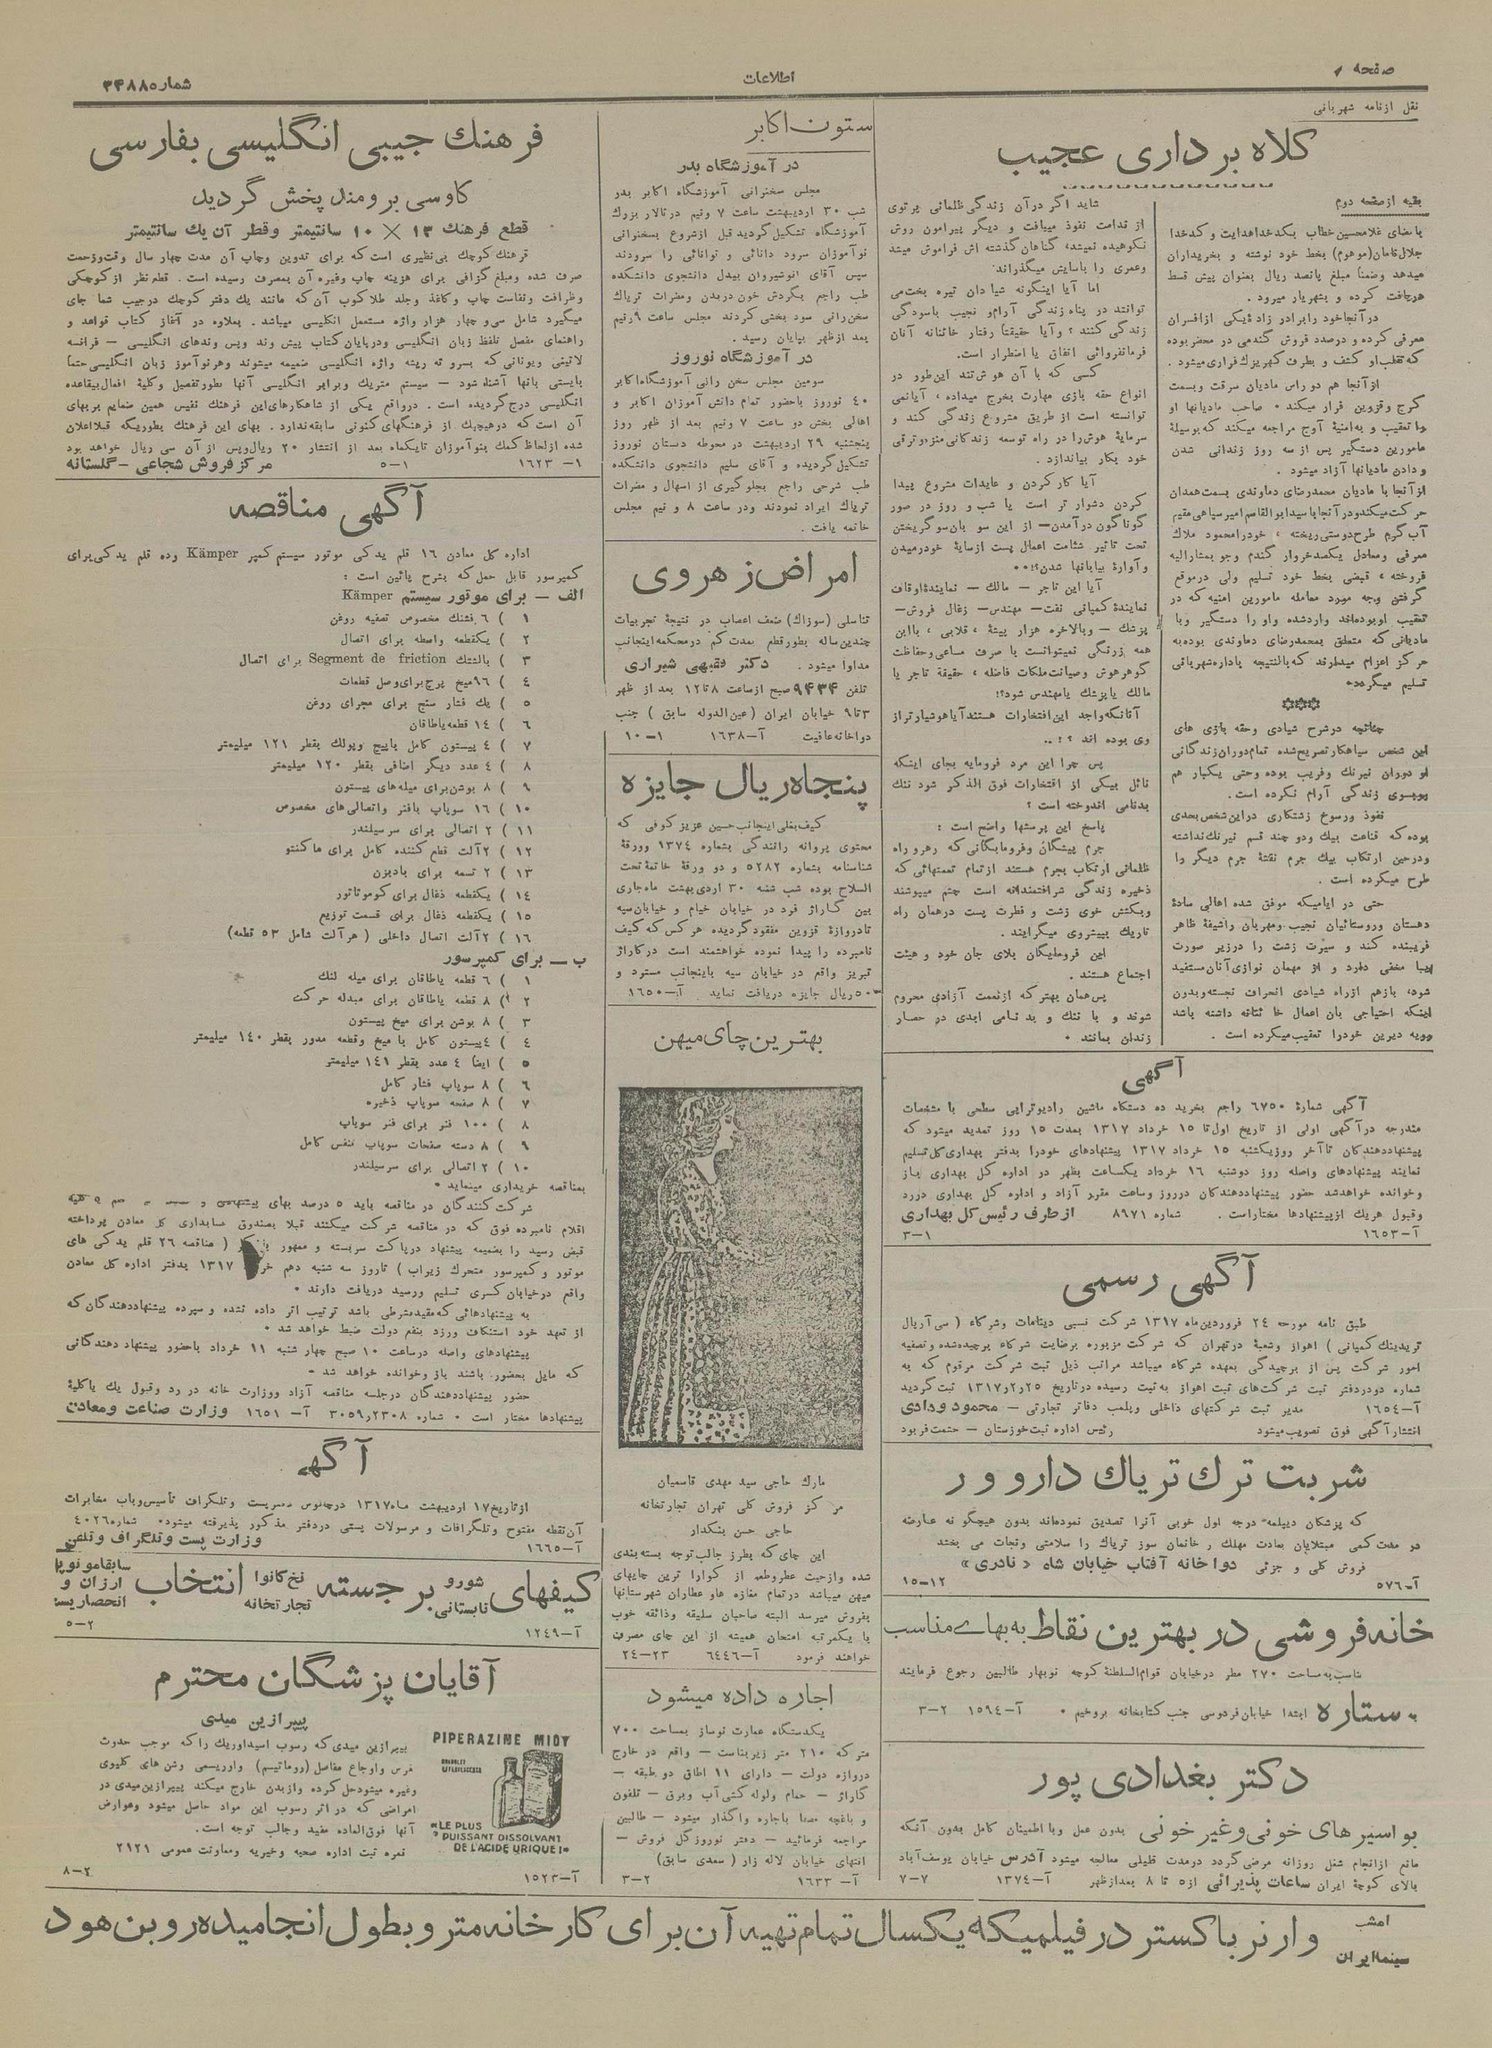 صفحه
اطلاعات
شماره ۳۴۸۸
نقل از نامه شهربانی
کلاه برداری عجیب
بقیه از صفحه دوم
بامضای غلامحسین خطاب بکدخداهدایت و کدخدا
جلال‌نامان (موهوم) بخط خود نوشته و بخریداران
میدهد وضمناً مبلغ پانصد ریال بعنوان پیش قسط
دریافت کرده و بشهریار میرود.
در آنجا خود را برادر زادهٔ یکی از افسران
معرفی کرده و درصدد فروش گندمی در محضر بوده
که تقلب او کشف و بطرف کهریزک فراری میشود.
از آنجا هم دو راس مادیان سرقت و بسمت
کرج و قزوین فرار میکند، صاحب مادیانها او
را تعقیب و به‌امنیهٔ آوج مراجعه میکند که بوسیلهٔ
مامورین دستگیر پس از سه روز زندانی شدن
و دادن مادیانها آزاد میشود.
از آنجا با مادیان محمدرضای دماوندی بسمت همدان
حرکت میکند و در آنجا با سید ابوالقاسم امیر سپاهی مقیم
آب گرم طرح دوستی ریخته، خود را محمود ملاک
معرفی و معادل یکصد خروار گندم وجو بمشارالیه
فروخته، قبضی بخط خود تسلیم ولی در موقع
گرفتن وجه مورد معامله مامورین امنیه که در
تعقیب او بوده‌اند وارد شده و او را دستگیر و با
مادیانی که متعلق بمحمدرضای دماوندی بوده به
مرکز اعزام میدارند که بالنتیجه باداره شهربانی
تسلیم میگردد.
***
چنانچه در شرح شیادی و حقه بازی های
این شخص سیاهکار تصریح شده تمام دوران زندگانی
او دوران نیرنگ و فریب بوده و حتی یکبار هم
زندگی آرام نکرده است.
نفوذ و رسوخ زشتکاری در این شخص بحدی
بوده که قناعت بیک و دو چند قسم نیرنگ نداشته
و در حین ارتکاب بیک جرم نقشهٔ جرم دیگر را
طرح میکرده است.
حتی در ایامیکه موفق شده اهالی سادهٔ
دهستان و روستائیان نجیب و مهربان را شیفتهٔ ظاهر
فریبنده کند و سیرت زشت را در زیر صورت
زیبا مخفی دارد و از مهمان نوازی آنان مستفید
شود، باز هم از راه شیادی انحراف نجسته و بدون
اینکه احتیاجی بان اعمال خائنانه داشته باشد
رویه دیرین خود را تعقیب میکرده است.
شاید اگر در آن زندگی ظلمانی پرتوی
از ندامت نفوذ مییافت و دیگر پیرامون روش
نکوهیده نمیشد، گناهان گذشته اش فراموش میشد
وعمری را بآسایش میگذراند.
اما آیا اینگونه شیادان تیره بخت می
توانند در پناه زندگی آرام و نجیب بآسودگی
زندگی کنند؟ و آیا حقیقتاً رفتار خائنانه آنان
فرمانفروائی اتفاق یا اضطرار است.
کسی که با آن هوش تند این‌طور در
انواع حقه بازی مهارت بخرج میداده، آیا نمی
توانسته است از طریق مشروع زندگی کند و
سرمایهٔ هوش را در راه توسعه زندگانی منزه و ترقی
خود بکار بیاندازد.
آیا کار کردن و عایدات مشروع پیدا
کردن دشوار تر است یا شب و روز در صور
گوناگون درآمدن — از این سو بان سو گریختن
تحت تاثیر شئامت اعمال پست از سایهٔ خود رمیدن
و آوارهٔ بیابانها شدن؟!..
آیا این تاجر — مالک — نمایندهٔ اوقاف
نمایندهٔ کمپانی نفت — مهندس — زغال فروش —
پزشک — و بالاخره هزار پیشهٔ، قلابی، با این
همه زرنگی نمیتوانست با صرف مساعی و حفاظت
گوهر هوش و صیانت ملکات فاضله، حقیقة تاجر یا
مالک یا پزشک یا مهندس شود؟!
آنانکه واجد این افتخارات هستند آیا هوشیار تر از
وی بوده اند؟!..
پس چرا این مرد فرومایه بجای اینکه
نائل بیکی از افتخارات فوق الذکر شود ننگ
بدنامی اندوخته است؟
پاسخ این پرسشها واضح است:
جرم پیشگان و فرومایگانی که رهرو راه
ظلمانی ارتکاب بجرم هستند از تمام تمتعهائی که
ذخیره زندگی شرافتمندانه است چشم میپوشند
و بکنش خوی زشت و فطرت پست در همان راه
تاریک پیشروی میگرایند.
این فرومایگان بلای جان خود و هیئت
اجتماع هستند.
پس همان بهتر که از نعمت آزادی محروم
شوند و با ننگ و بدنامی ابدی در حصار
زندان بمانند.
آگهی
آگهی شمارهٔ ۶۷۵۰ راجع بخرید ده دستگاه ماشین رادیوترابی سطحی با مشخصات
مندرجه در آگهی اولی از تاریخ اول تا ۱۵ خرداد ۱۳۱۷ بمدت ۱۵ روز تمدید میشود که
پیشنهاددهندگان تا آخر روز یکشنبه ۱۵ خرداد ۱۳۱۷ پیشنهادهای خود را بدفتر بهداری کل تسلیم
نمایند پیشنهادهای واصله روز دوشنبه ۱۶ خرداد یکساعت بظهر در اداره کل بهداری باز
و خوانده خواهد شد حضور پیشنهاددهندگان در روز و ساعت مقرر آزاد و اداره کل بهداری در رد
و قبول هریک از پیشنهادها مختار است. شماره ۸۹۷۱ از طرف رئیس کل بهداری
آ—۱۶۵۳ ۱—۳
آگهی رسمی
طبق نامه مورخه ۲۴ فروردین ماه ۱۳۱۷ شرکت نسبی دینامات وشرکاء (سی آر بال
تریدینک کمپانی) اهواز وشعبهٔ در تهران که شرکت مزبوره برضایت شرکاء برچیده شده و تصفیه
امور شرکت پس از برچیدگی بعهده شرکاء میباشد مراتب ذیل ثبت شرکت مرقوم که به
شماره دو در دفتر ثبت شرکت‌های ثبت اهواز به ثبت رسیده در تاریخ ۲۵ر۲ر۱۳۱۷ ثبت گردید
آ—۱۶۵۴ مدیر ثبت شرکتهای داخلی وپلمب دفاتر تجارتی — محمود ودادی
انتشار آگهی فوق تصویب میشود رئیس اداره ثبت خوزستان — حشمت فربود
شربت ترک تریاک دارو ور
که پزشکان دیپلمه درجه اول خوبی آنرا تصدیق نموده‌اند بدون هیچگونه عارضه
در مدت کمی مبتلایان بعادت مهلک و خانمان سوز تریاک را سلامتی ونجات می بخشد
فروش کلی و جزئی دواخانه آفتاب خیابان شاه «نادری»
آ—۵۷۶ ۱۲—۱۵
خانه فروشی در بهترین نقاط به بهای مناسب
مناسب به مساحت ۲۷۰ متر در خیابان قوام‌السلطنهٔ کوچه نوبهار طالبین رجوع فرمایند
به ستاره ابتدا خیابان فردوسی جنب کتابخانه بروخیم. آ—۱۵۹۴ ۲—۳
دکتر بغدادی پور
بواسیر های خونی و غیر خونی بدون عمل و با اطمینان کامل بدون آنکه
مانع از انجام شغل روزانه مرض گردد در مدت قلیلی معالجه میشود آدرس خیابان یوسف آباد
بالای کوچهٔ ایران ساعات پذیرائی از ۵ تا ۸ بعدازظهر آ—۱۳۷۴ ۷—۷
ستون اکابر
در آموزشگاه بدر
مجلس سخنرانی آموزشگاه اکابر بدر
شب ۳۰ اردیبهشت ساعت ۷ ونیم در تالار بزرگ
آموزشگاه تشکیل گردید قبل از شروع بسخنرانی
نوآموزان سرود دانائی و توانائی را سرودند
سپس آقای انوشیروان بیدل دانشجوی دانشکده
طب راجع بگردش خون در بدن ومضرات تریاک
سخن‌رانی سودبخشی کردند مجلس ساعت ۹ ونیم
بعد از ظهر بپایان رسید.
در آموزشگاه نوروز
سومین مجلس سخن رانی آموزشگاه اکابر
۴۰ نوروز باحضور تمام دانش آموزان اکابر و
اهالی بخش دو ساعت ۷ ونیم بعد از ظهر روز
پنجشنبه ۲۹ اردیبهشت در محوطه دستان نوروز
تشکیل گردیده و آقای سلیم دانشجوی دانشکده
طب شرحی راجع بجلوگیری از اسهال و مضرات
تریاک ایراد نمودند و در ساعت ۸ و نیم مجلس
خاتمه یافت.
امراض زهروی
تناسلی (سوزاک) ضعف اعصاب در نتیجهٔ تجربیات
چندین ساله بطور قطع بمدت کم در محکمه اینجانب
مداوا میشود. دکتر فقیهی شیرازی
تلفن ۹۴۳۴ صبح از ساعت ۸ تا ۱۲ بعد از ظهر
۳ تا ۹ خیابان ایران (عین‌الدوله سابق) جنب
دواخانه عافیت آ—۱۶۳۸ ۱—۱۰
پنجاه ریال جایزه
کیف بغلی اینجانب حسین عزیز کوفی که
محتوی پروانه رانندگی بشماره ۱۳۷۴ وورقهٔ
شناسنامه بشماره ۵۲۸۲ و دو ورقهٔ خاتمهٔ تحت
السلاح بوده شب شنبه ۳۰ اردیبهشت ماه جاری
بین گاراژ فرد در خیابان خیام و خیابان سپه
تا دروازهٔ قزوین مفقود گردیده هر کس که کیف
نامبرده را پیدا نموده خواهشمند است در گاراژ
تبریز واقع در خیابان سپه باینجانب مسترد و
۵۰ ریال جایزه دریافت نماید. آ—۱۶۵۰
بهترین چای میهن
مارک حاجی سید مهدی قاسمیان
مرکز فروش کلی تهران تجارتخانه
حاجی حسن بنکدار
این چای که بطرز جالب توجه بسته بندی
شده و ازحیث عطر و طعم از گوارا ترین چایهای
میهن میباشد در تمام مغازه ها و عطاران شهرستانها
بفروش میرسد البته صاحبان سلیقه و ذائقه خوب
با یکمرتبه امتحان همیشه از این چای مصرف
خواهند فرمود آ—۶۴۴۶ ۲۳—۲۴
اجاره داده میشود
یکدستگاه عمارت نوساز بمساحت ۷۰۰
متر که ۲۱۰ متر زیربناست — واقع در خارج
دروازه دولت — دارای ۱۱ اطاق دو طبقه —
گاراژ — حمام ولوله کشی آب وبرق — تلفون
و باغچه مصفا باجاره واگذار میشود — طالبین
مراجعه فرمائید — دفتر نوروز گل فروش —
انتهای خیابان لاله زار (سعدی سابق)
آ—۱۶۳۳ ۲—۳
فرهنک جیبی انگلیسی بفارسی
کاوسی برومند پخش گردید
قطع فرهنک ۱۳ × ۱۰ سانتیمتر وقطر آن یک سانتیمتر
فرهنک کوچک بی‌نظیری است که برای تدوین وچاپ آن مدت چهار سال وقت وزحمت
صرف شده ومبلغ گزافی برای هزینه چاپ وغیره آن بمصرف رسیده است. قطع نظر از کوچکی
وظرافت ونفاست چاپ وکاغذ وجلد طلاکوب آن که مانند یک دفتر کوچک درجیب شما جای
میگیرد شامل سی و چهار هزار واژه مستعمل انگلیسی میباشد. بعلاوه در آغاز کتاب قواعد و
راهنمای مفصل تلفظ زبان انگلیسی ودرپایان کتاب پیش وند وپس وندهای انگلیسی — فرانسه
لاتینی ویونانی که بسر و ته ریشه واژه انگلیسی ضمیمه میشوند وهرنوآموز زبان انگلیسی حتماً
بایستی بانها آشنا شود — سیستم متریک وبرابر انگلیسی آنها بطور تفصیل وکلیهٔ افعال بیقاعده
انگلیسی درج گردیده است. درواقع یکی از شاهکارهای این فرهنک نفیس همین ضمایم پربهای
آن است که درهیچیک از فرهنگهای کنونی سابقه ندارد. بهای این فرهنک بطوریکه قبلا اعلان
شده ازلحاظ کمک بنوآموزان تا یکماه بعد از انتشار ۲۰ ریال وپس از آن سی ریال خواهد بود
آ—۱۶۲۳ ۱—۵ مرکز فروش شجاعی — گلستانه
آگهی مناقصه
اداره کل معادن ۱۶ قلم یدکی موتور سیستم کمپر Kämper وده قلم یدکی برای
کمپرسور قابل حمل که بشرح پائین است:
الف — برای موتور سیستم Kämper
۱) ۶ فشنک مخصوص تصفیه روغن
۲) یکقطعه واسطه برای اتصال
۳) بالشتک Segment de friction برای اتصال
۴) ۹۶ میخ پرچ برای وصل قطعات
۵) یک فشار سنج برای مجرای روغن
۶) ۱۴ قطعه یاطاقان
۷) ۴ پیستون کامل باپیچ وپولک بقطر ۱۲۱ میلیمتر
۸) ۴ عدد دیگر اضافی بقطر ۱۲۰ میلیمتر
۹) ۸ بوشن برای میله های پیستون
۱۰) ۱۶ سوپاپ بافنر واتصالی‌های مخصوص
۱۱) ۲ اتصالی برای سرسیلندر
۱۲) ۲ آلت قطع کننده کامل برای ماگنتو
۱۳) ۲ تسمه برای بادبزن
۱۴) یکقطعه ذغال برای کوموتاتور
۱۵) یکقطعه ذغال برای قسمت توزیع
۱۶) ۲ آلت اتصال داخلی (هر آلت شامل ۵۳ قطعه)
ب — برای کمپرسور
۱) ۶ قطعه یاطاقان برای میله لنک
۲) ۸ قطعه یاطاقان برای مبدله حرکت
۳) ۸ بوشن برای میخ پیستون
۴) ۴ پیستون کامل با میخ وقطعه مدور بقطر ۱۴۰ میلیمتر
۵) ایضاً ۴ عدد بقطر ۱۴۱ میلیمتر
۶) ۸ سوپاپ فشار کامل
۷) ۸ صفحه سوپاپ ذخیره
۸) ۱۰۰ فنر برای فنر سوپاپ
۹) ۸ دسته صفحات سوپاپ تنفس کامل
۱۰) ۲ اتصالی برای سرسیلندر
بمناقصه خریداری مینماید.
شرکت کنندگان در مناقصه باید ۵ درصد بهای پیشنهادی
اقلام نامبرده فوق که در مناقصه شرکت میکنند قبلا بصندوق حسابداری کل معادن پرداخته
قبض رسید را بضمیمه پیشنهاد در پاکت سربسته و ممهور (مناقصه ۲۶ قلم یدکی های
موتور و کمپرسور متحرک زیراب) تا روز سه شنبه دهم ۱۳۱۷ بدفتر اداره کل معادن
واقع در خیابان کسری تسلیم ورسید دریافت دارند.
به پیشنهادهائی که مقید بشرطی باشد ترتیب اثر داده نشده و سپرده پیشنهاددهندگان که
از تعهد خود استنکاف ورزد بنفع دولت ضبط خواهد شد.
پیشنهادهای واصله درساعت ۱۰ صبح چهار شنبه ۱۱ خرداد باحضور پیشنهاد دهندگانی
که مایل بحضور باشند باز وخوانده خواهد شد.
حضور پیشنهاددهندگان درجلسه مناقصه آزاد ووزارت خانه در رد وقبول یک یا کلیهٔ
پیشنهادها مختار است. شماره ۲۳۰۸ر۳۰۵۹ آ—۱۶۵۱ وزارت صناعت ومعادن
آگهی
از تاریخ ۱۷ اردیبهشت ماه ۱۳۱۷ پست وتلگراف تأسیس وباب مخابرات
آن نقطه مفتوح وتلگرافات و مرسولات پستی در دفتر مذکور پذیرفته میشود. شماره ۴۰۲۶
آ—۱۶۶۵ وزارت پست وتلگراف وتلفن
کیفهای شورو تابستانی برجسته نخ کانوا تجارتخانه انتخاب سابقا مونوپل ارزان و انحصاریست
آ—۱۲۴۹ ۲—۵
آقایان پزشگان محترم
پیپرازین میدی
پیپرازین میدی که رسوب اسیداوریک را که موجب حدوث
نقرس واوجاع مفاصل (روماتیسم) واوریسمی وشن های کلیوی
وغیره میشود حل کرده وازبدن خارج میکند پیپرازین میدی در
امراضی که در اثر رسوب این مواد حاصل میشود وعوارض
آنها فوق‌العاده مفید وجالب توجه است.
نمره ثبت اداره صحیه وخیریه ومعاونت عمومی ۲۱۲۱
آ—۱۵۲۳ ۲—۸
PIPERAZINE MIDY
GRANULÉE
EFFERVESCENTE
«LE PLUS
PUISSANT DISSOLVANT
DE L'ACIDE URIQUE!»
امشب
سینما ایران
وارنر باکستر در فیلمیکه یکسال تمام تهیه آن برای کارخانه مترو بطول انجامیده روبن هود